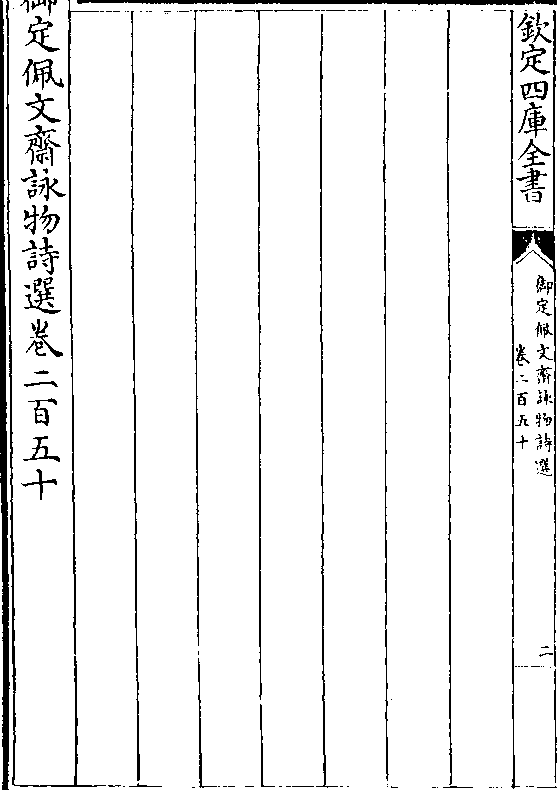 欽定四庫全書
御定佩文齋詠物詩選
卷二百五十
二
御定佩文齋詠物詩選卷二百五十